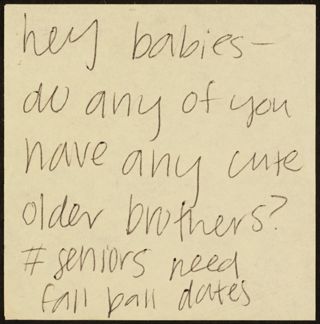 hey babies-
do any of you
have any cute
older brothers?
# seniors need
fall ball dates